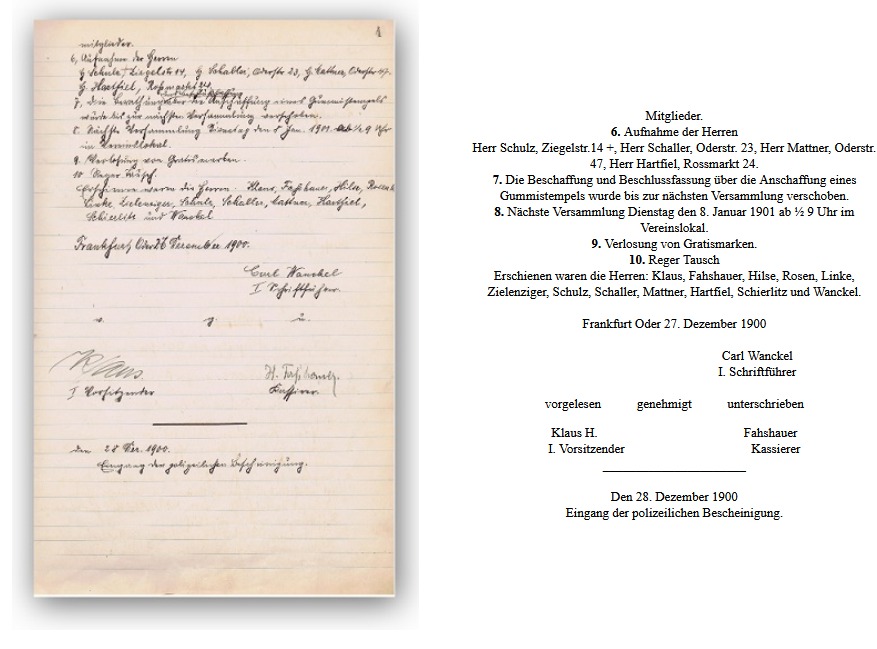 1
mitglieder.
6, Aufnahme der Herren
H Schulz, + Ziegelstr 14, H. Schaller, Oderstr 23, H. Mattner, Oderstr 47.
H. Hartfiel, Roßmarkt 24.
7. Die über die Anschaffung eines Gummistempels
wurde bis zur nächsten Versammlung verschoben.
8. Nächste Versammlung Dienstag den 8 Jan. 1901. ab ½ 9 Uhr
im Vereinslokal.
9. Verlosung von Gratismarken.
10 Reger Tausch.
Erschienen waren die Herren. Klaus, Fahshauer, Hilse, Rosen
Linke, Zielenziger, Schulz, Schaller, Mattner, Hartfiel,
Schierlitz und Wanckel
Frankfurt, Oder Dezember 1900.
Carl Wanckel
I Schriftführer.
v. g. u.
Klaus. H. Fahshauer.
I Vorsitzender Kassierer.
den 28 Dez. 1900.
Eingang der polizeilichen Bescheinigung.
Mitglieder.
6. Aufnahme der Herren
Herr Schulz, Ziegelstr.14 +, Herr Schaller, Oderstr. 23, Herr Mattner, Oderstr.
47, Herr Hartfiel, Rossmarkt 24.
7. Die Beschaffung und Beschlussfassung über die Anschaffung eines
Gummistempels wurde bis zur nächsten Versammlung verschoben.
8. Nächste Versammlung Dienstag den 8. Januar 1901 ab ½ 9 Uhr im
Vereinslokal.
9. Verlosung von Gratismarken.
10. Reger Tausch
Erschienen waren die Herren: Klaus, Fahshauer, Hilse, Rosen, Linke,
Zielenziger, Schulz, Schaller, Mattner, Hartfiel, Schierlitz und Wanckel.
Frankfurt Oder 27. Dezember 1900
Carl Wanckel
I. Schriftführer
vorgelesen genehmigt unterschrieben
Klaus H. Fahshauer
I. Vorsitzender Kassierer
Den 28. Dezember 1900
Eingang der polizeilichen Bescheinigung.